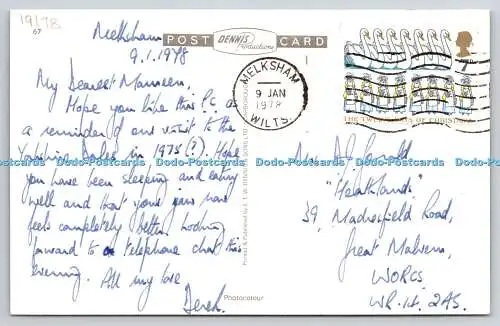 19178
67
Melksham
9.1.1978
POST CARD
DENNIS
Productions
My Dearest Maureen,
Hope you like this P.C. as
a reminder of our visit to the
Yorkshire Dales in 1975 (?). Hope
you have been sleeping and eating
well and that your jaw now
feels completely better. Looking
forward to a telephone chat this
evening. All my love
Derek.
MELKSHAM
9 JAN
1978
WILTS.
7
THE TWELVE DAYS OF CHRISTMAS
"Heathlands"
39, Madresfield Road,
Great Malvern,
WORCS
WR.14. 2AS.
Photocolour
Dodo-Postcards Dodo-Postcards Dodo-Postcards Dodo-Postcards Dodo-Postcards